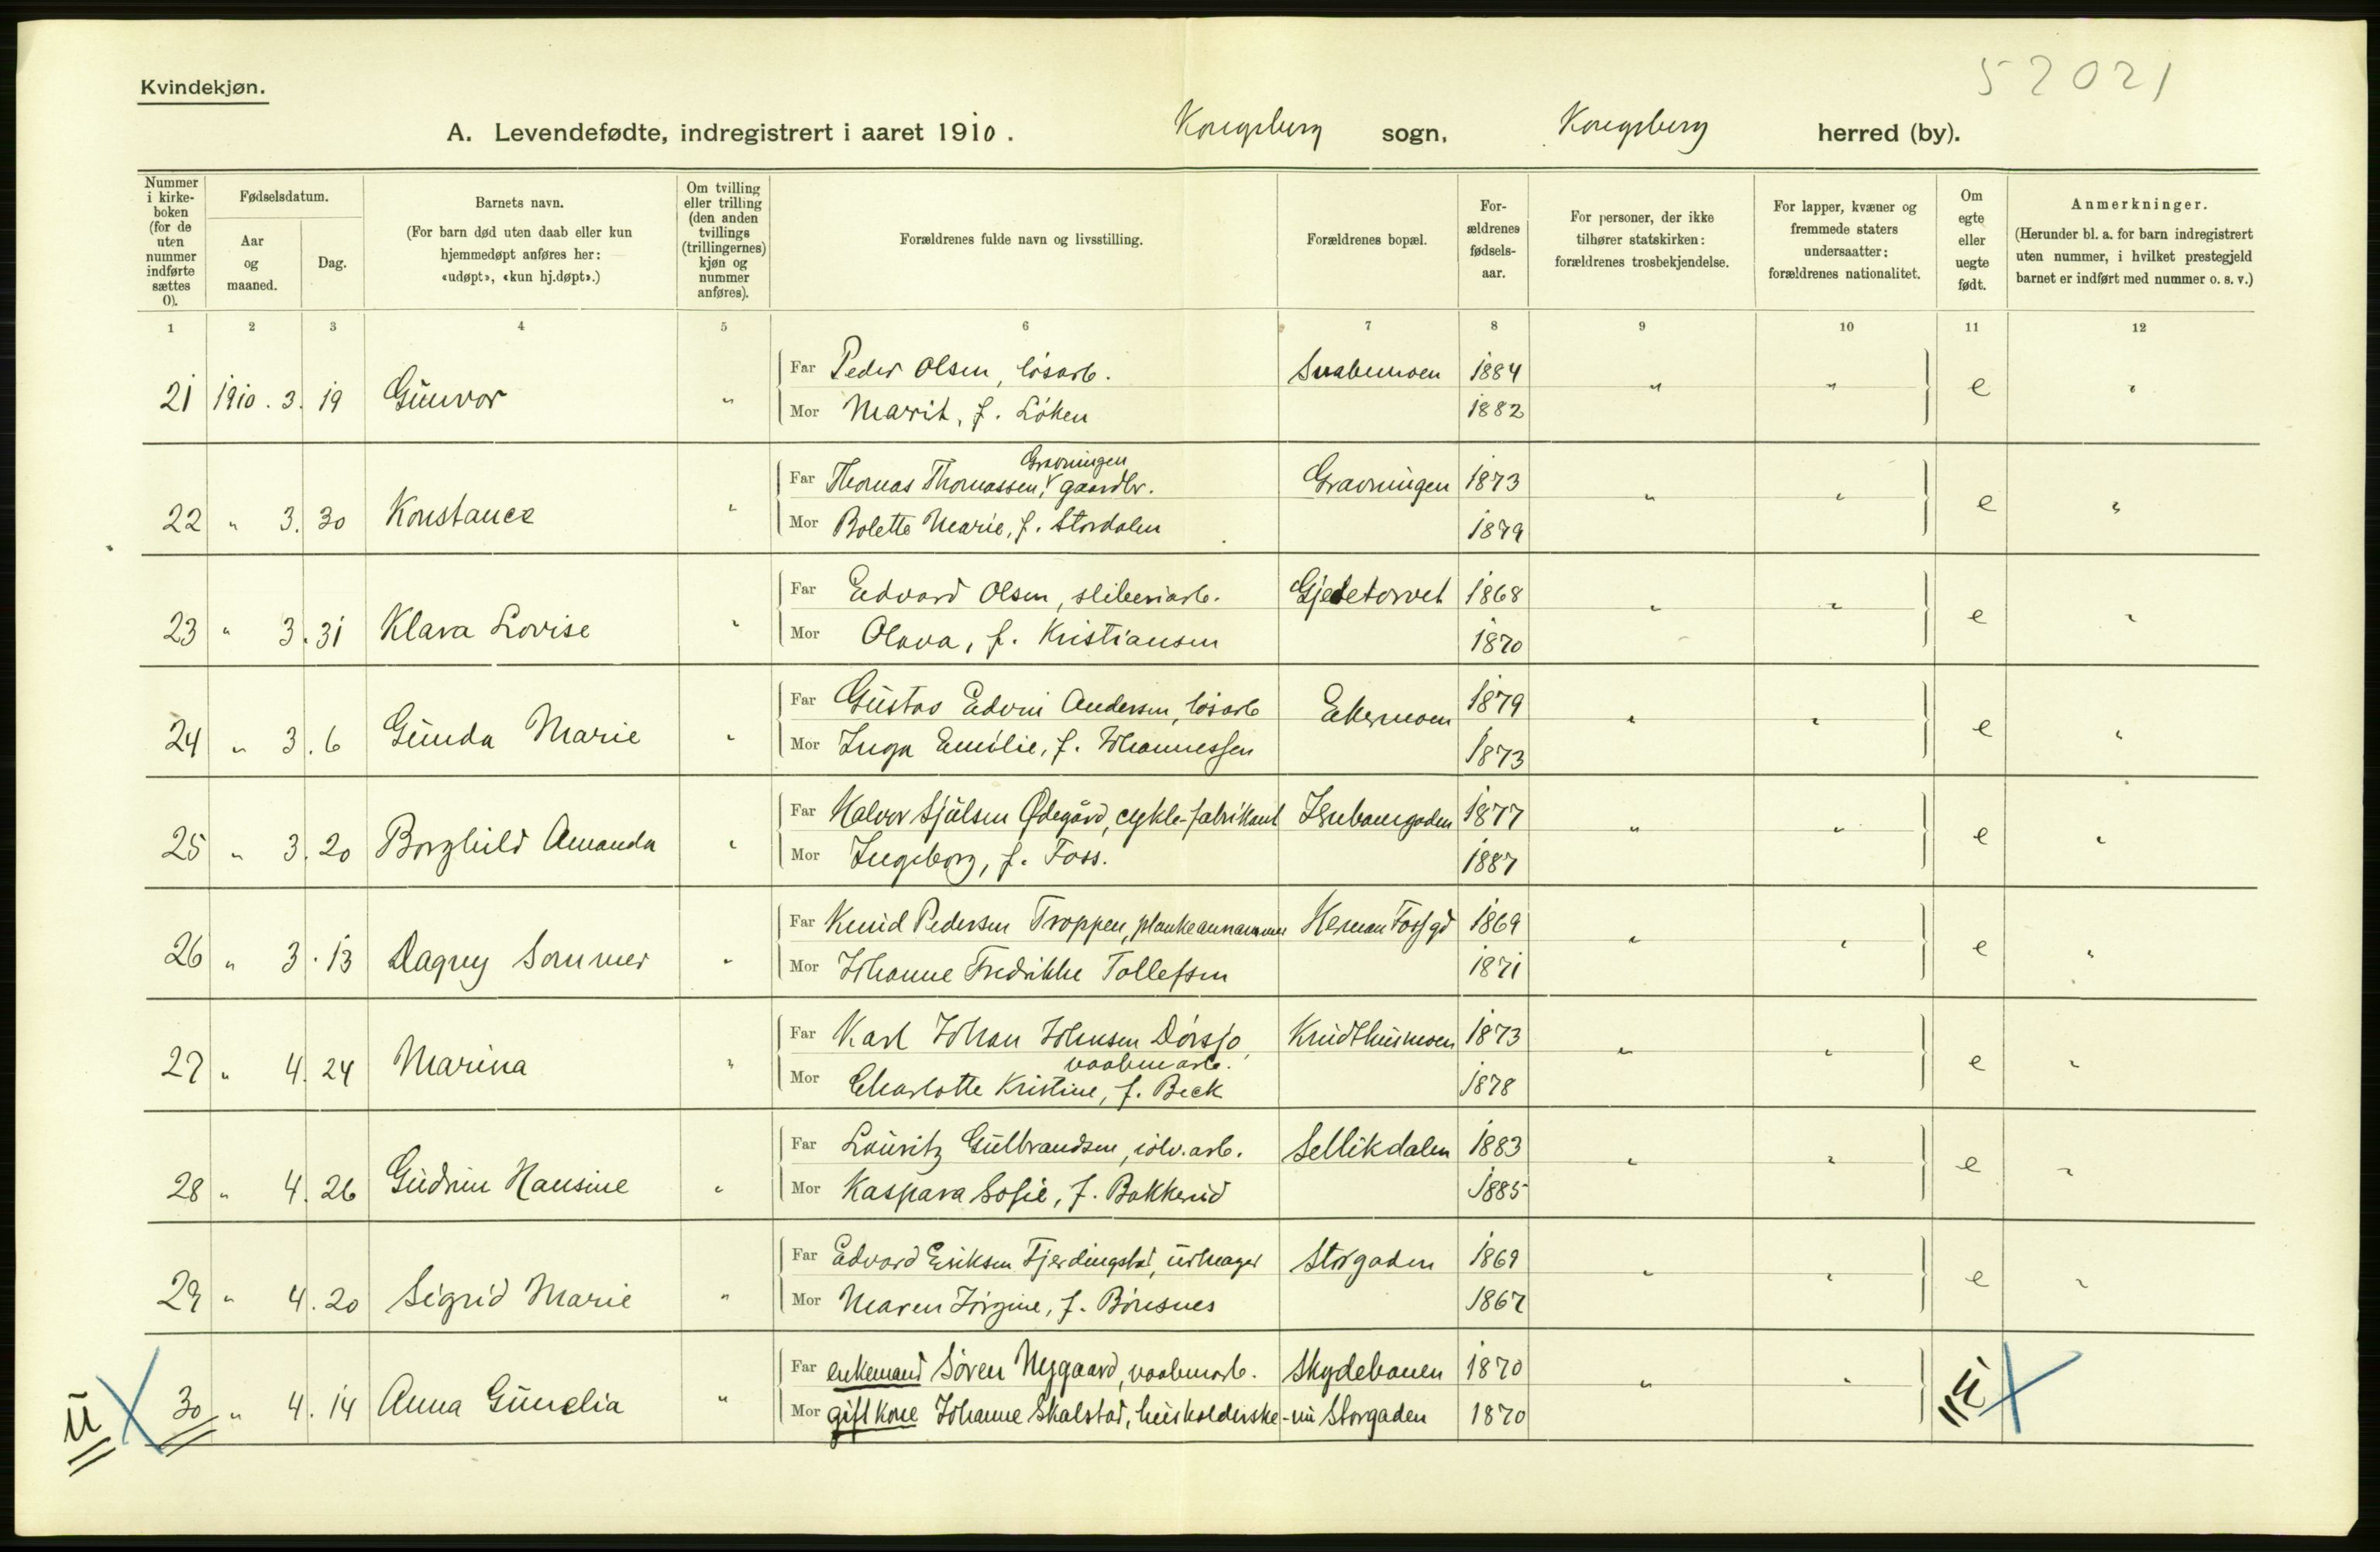 Kvindekjøn.
52021
A. Levendefødte, indregistrert i aaret 1910. Kongsberg sogn, Kongsberg herred (by).
Nummer i kirke-boken (for de uten nummer indførte sættes 0).
Fødselsdatum.
Aar og maaned.
Dag.
Barnets navn.
(For barn død uten daab eller kun hjemmedøpt anføres her: «udøpt», «kun hj.døpt».)
Om tvilling eller trilling (den anden tvillings (trillingernes) kjøn og nummer anføres).
Forældrenes fulde navn og livsstilling.
Forældrenes bopæl.
For-ældrenes fødsels-aar.
For personer, der ikke tilhører statskirken: forældrenes trosbekjendelse.
For lapper, kvæner og fremmede staters undersaatter: forældrenes nationalitet.
Om egte eller uegte født.
Anmerkninger.
(Herunder bl. a. for barn indregistrert uten nummer, i hvilket prestegjeld barnet er indført med nummer o. s. v.)
1 2 3 4 5 6 7 8 9 10 11 12
Far Peder Olsen, løsarb. Snabemoen 1884
21 1910. 3. 19 Gunvor " " " e "
Mor Marit, f. Løken 1882
Gravningen
Far Thomas Thomassen, gaardbr. Gravningen 1873
22 " 3. 30 Konstance " " " e "
Mor Bolette Marie, f. Stordalen 1879
Far Edvard Olsen, sliberiarb. Gjedetorvet 1868
23 " 3. 31 Klara Lovise " " " e "
Mor Olava, f. Kristiansen 1870
Far Gustav Edvin Andersen, løsarb Ekermoen 1879
24 " 3. 6 Gunda Marie " " " e "
Mor Inga Emilie, f. Johannessen 1873
Far Halvor Hjulsen Ødegård, cykle-fabrikant 1877
25 " 3. 20 Borghild Amanda " " " e "
Mor Ingeborg, f. Foss. 1887
Far Knud Pedersen Troppen, plankeannammer Herman Fossgd 1869
26 " 3. 13 Dagny Sommer " " " e "
Mor Johanne Fredrikke Tollefsen 1871
Far Karl Johan Johnsen Dørsjø, Krudthusmoen 1873
vaabenarb.
27 " 4. 24 Marina " " " e "
Mor Charlotte Kristine, f. Beck 1878
Far Lauritz Gulbrandsen, sølv.arb. Sellikdalen 1883
28 " 4. 26 Gudrun Hansine " " " e "
Mor Kaspara Sofie, f. Bakkerud 1885
Far Edvard Eriksen Fjerdingstad, urmager Storgaden 1869
29 " 4. 20 Sigrid Marie " " " e "
Mor Maren Jørgine, f. Børsnes 1867
Far enkemand Søren Nygaard, vaabenarb. Skydebanen 1870
u 30 " 4. 14 Anna Gunelia " " " "u"
Mor gift kone Johanne Skalstad, husholderske - nu Storgaden 1870